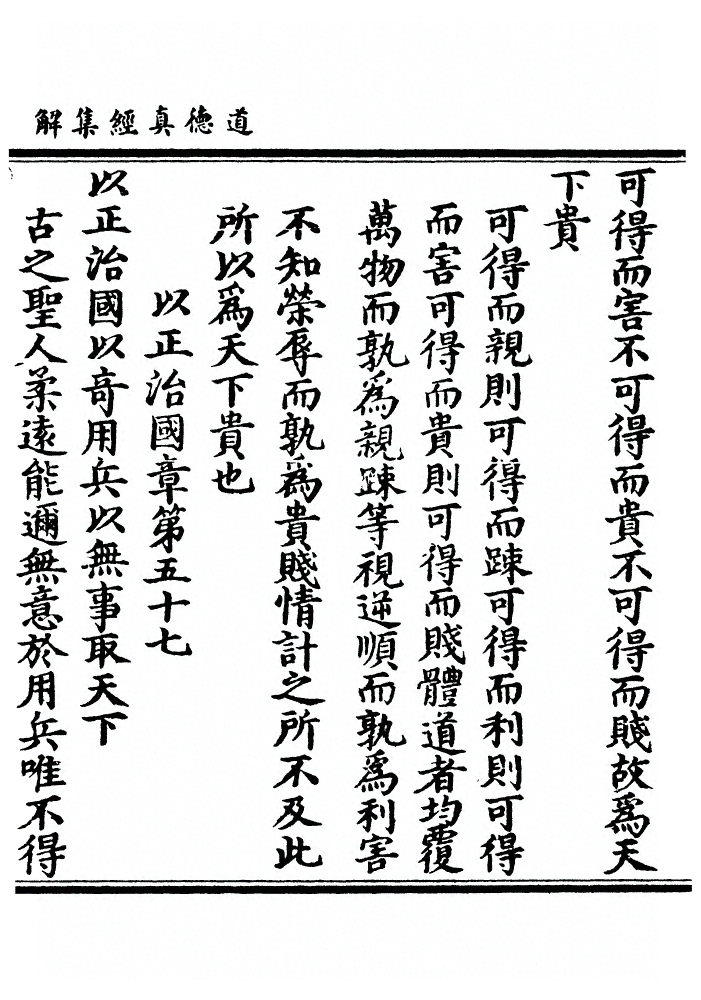 道德真經集解
可得而害不可得而貴不可得而賤故爲天
下貴
可得而親則可得而踈可得而利則可得
而害可得而貴則可得而賤體道者均覆
萬物而孰爲親踈等視逆順而孰爲利害
不知榮辱而孰爲貴賤情計之所不及此
所以爲天下貴也
以正治國章第五十七
以正治國以奇用兵以無事取天下
古之聖人柔遠能邇無意於用兵唯不得